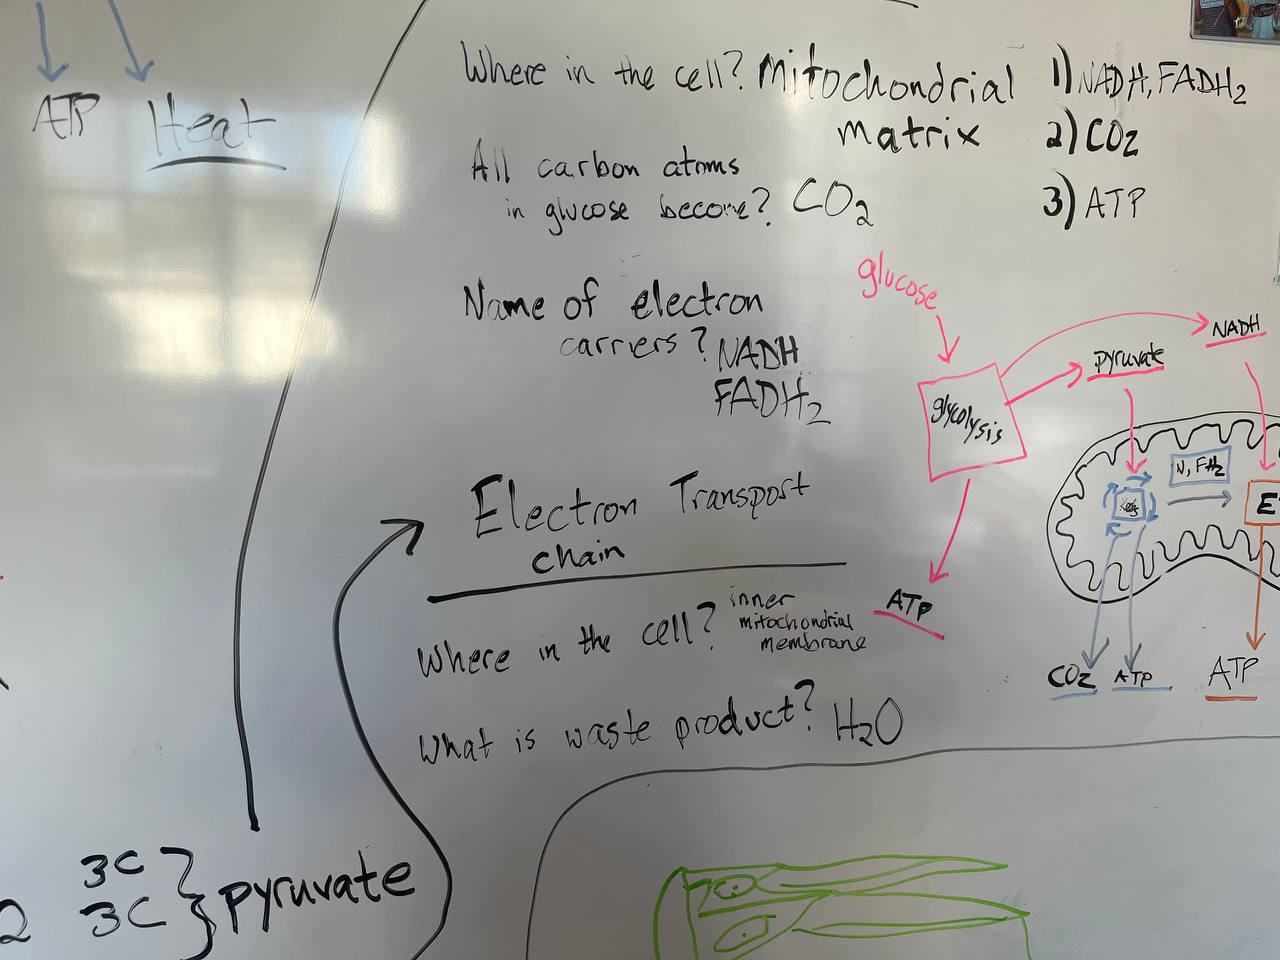 ATP Heat
Where in the cell? Mitochondrial
matrix
1) NADH, FADH2
2) CO2
3) ATP
All carbon atoms
in glucose become? CO2
Name of electron
carriers? NADH
FADH2
glucose
glycolysis
pyruvate
NADH
N, FH2
ATP
CO2 ATP
ATP
Electron Transport
chain
Where in the cell? inner
mitochondrial
membrane
What is waste product? H2O
3C
2 3C
pyruvate